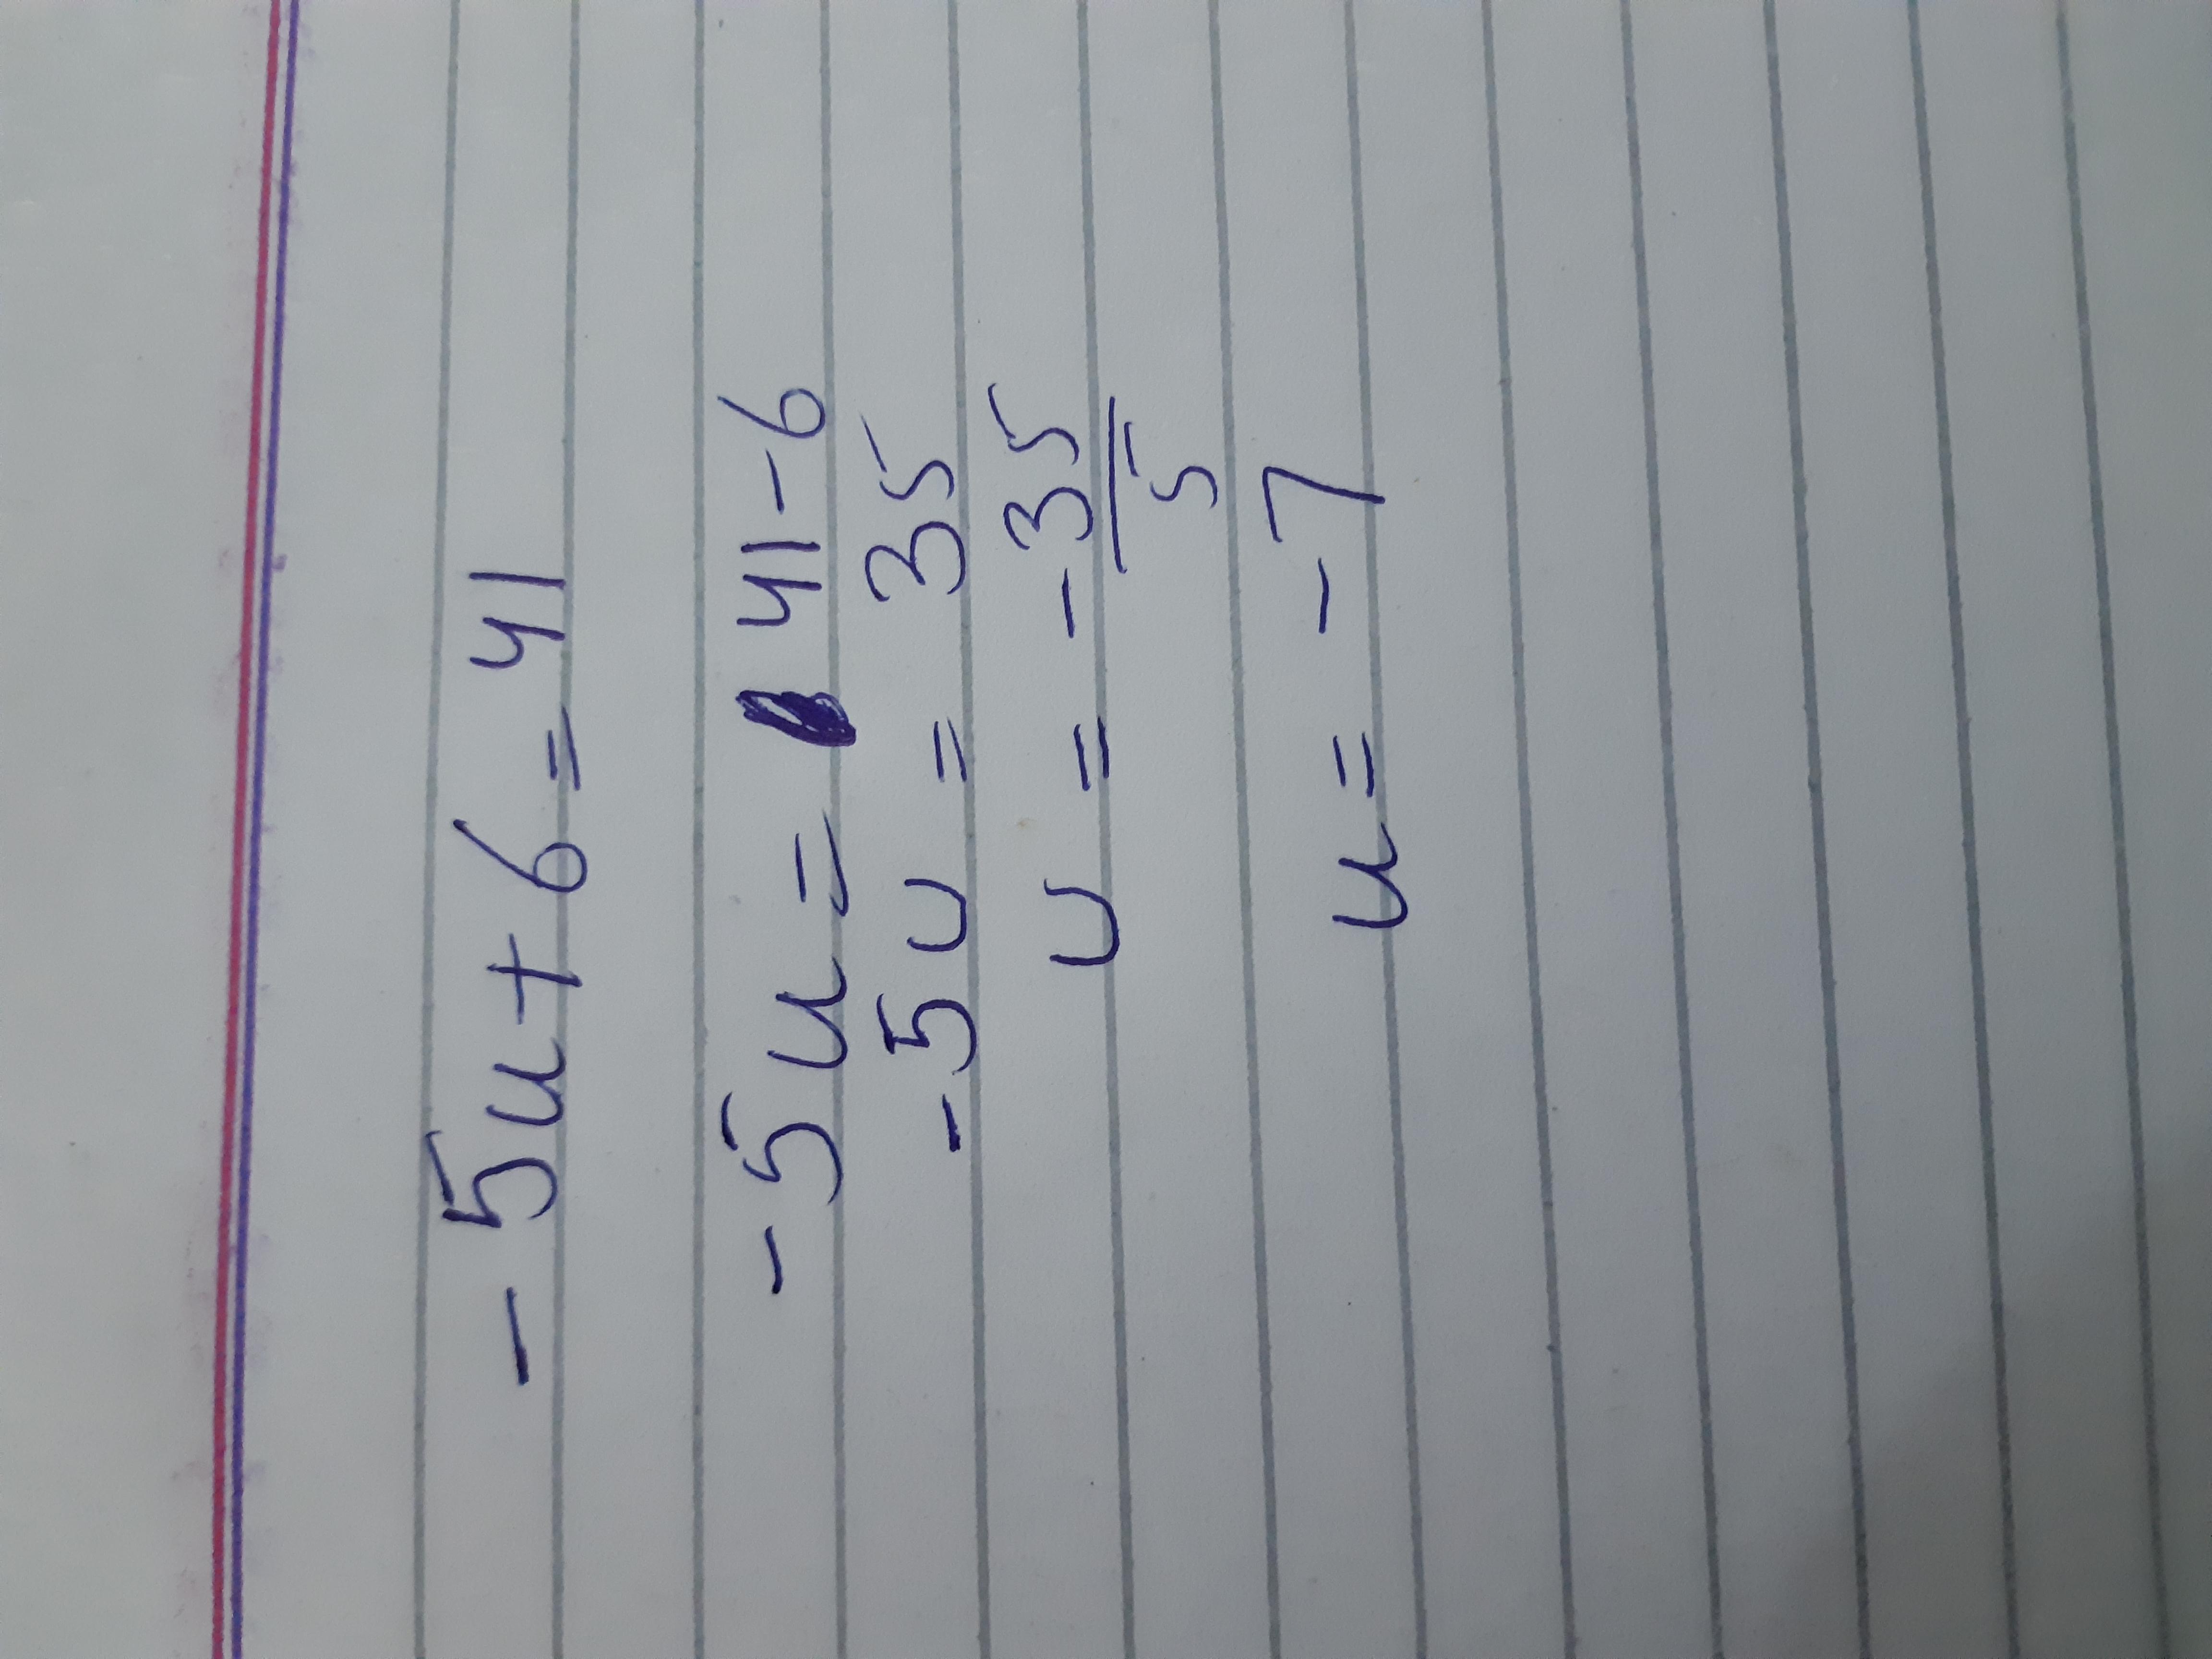 -5u+6=41
-5u= 41-6
-5u = 35
u = -35/5
u= -7